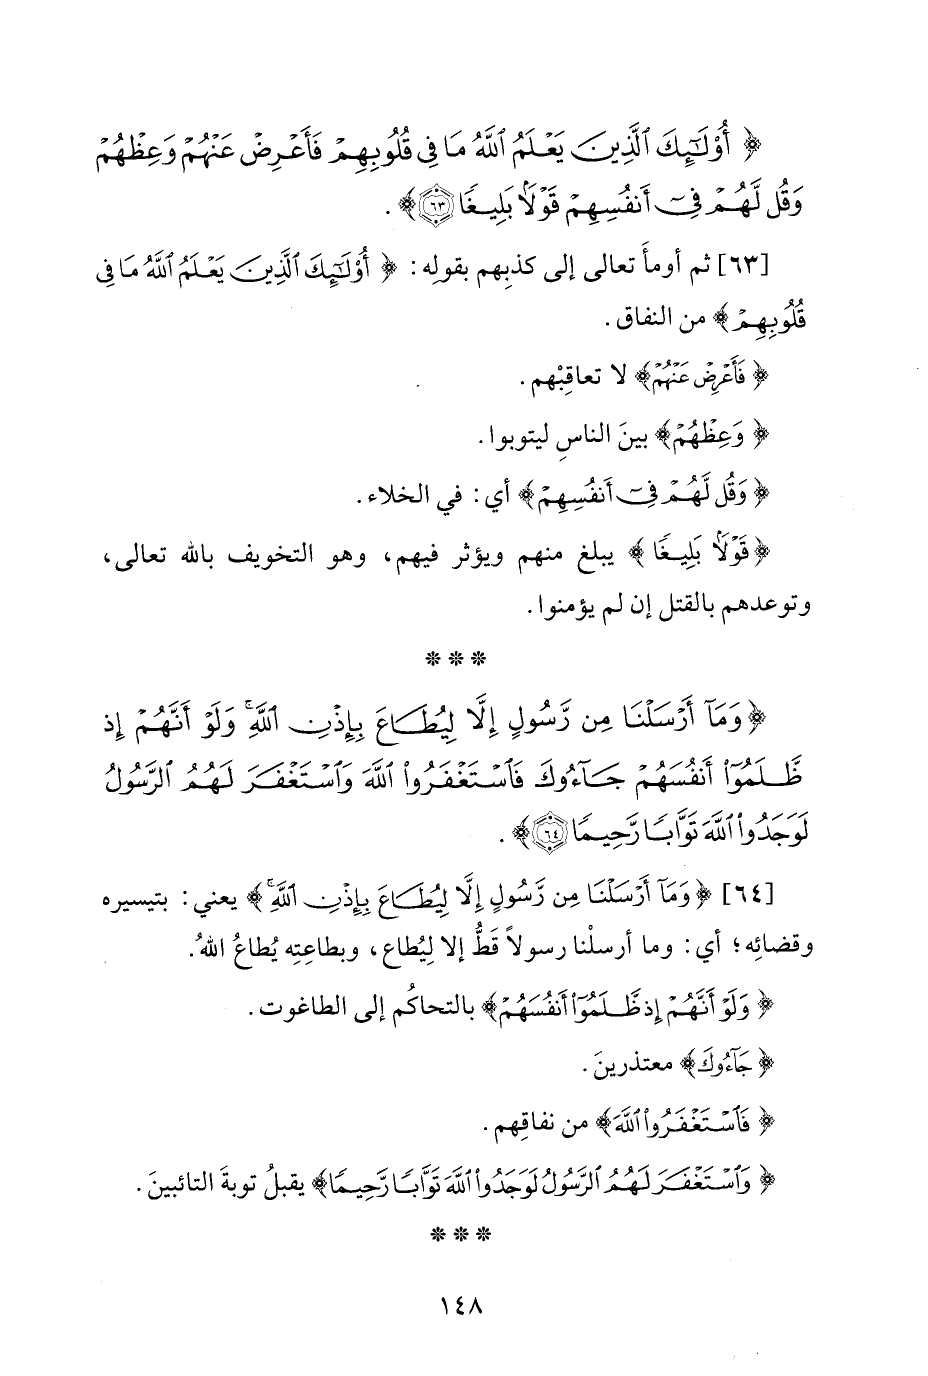 ﴿ أُوْلَٰٓئِكَ ٱلَّذِينَ يَعْلَمُ ٱللَّهُ مَا فِى قُلُوبِهِمْ فَأَعْرِضْ عَنْهُمْ وَعِظْهُمْ
وَقُل لَّهُمْ فِىٓ أَنفُسِهِمْ قَوْلًۢا بَلِيغًا ٦٣ ﴾ .
[٦٣] ثم أومأَ تعالى إلى كذبِهم بقولِه: ﴿ أُوْلَٰٓئِكَ ٱلَّذِينَ يَعْلَمُ ٱللَّهُ مَا فِى
قُلُوبِهِمْ ﴾ من النفاق.
﴿ فَأَعْرِضْ عَنْهُمْ ﴾ لا تعاقِبْهم.
﴿ وَعِظْهُمْ ﴾ بينَ الناسِ ليتوبوا.
﴿ وَقُل لَّهُمْ فِىٓ أَنفُسِهِمْ ﴾ أي: في الخلاء.
﴿ قَوْلًۢا بَلِيغًا ﴾ يبلغ منهم ويؤثر فيهم، وهو التخويف بالله تعالى،
وتوعدهم بالقتل إن لم يؤمنوا.
* * *
﴿ وَمَآ أَرْسَلْنَا مِن رَّسُولٍ إِلَّا لِيُطَاعَ بِإِذْنِ ٱللَّهِ ۚ وَلَوْ أَنَّهُمْ إِذ
ظَّلَمُوٓا۟ أَنفُسَهُمْ جَآءُوكَ فَٱسْتَغْفَرُوا۟ ٱللَّهَ وَٱسْتَغْفَرَ لَهُمُ ٱلرَّسُولُ
لَوَجَدُوا۟ ٱللَّهَ تَوَّابًا رَّحِيمًا ٦٤ ﴾ .
[٦٤] ﴿ وَمَآ أَرْسَلْنَا مِن رَّسُولٍ إِلَّا لِيُطَاعَ بِإِذْنِ ٱللَّهِ ۚ ﴾ يعني: بتيسيره
وقضائِه؛ أي: وما أرسلْنا رسولاً قَطُّ إلا لِيُطاع، وبطاعتِه يُطاعُ اللهُ.
﴿ وَلَوْ أَنَّهُمْ إِذ ظَّلَمُوٓا۟ أَنفُسَهُمْ ﴾ بالتحاكُم إلى الطاغوت.
﴿ جَآءُوكَ ﴾ معتذرينَ.
﴿ فَٱسْتَغْفَرُوا۟ ٱللَّهَ ﴾ من نفاقِهم.
﴿ وَٱسْتَغْفَرَ لَهُمُ ٱلرَّسُولُ لَوَجَدُوا۟ ٱللَّهَ تَوَّابًا رَّحِيمًا ﴾ يقبلُ توبةَ التائبينَ.
* * *
١٤٨